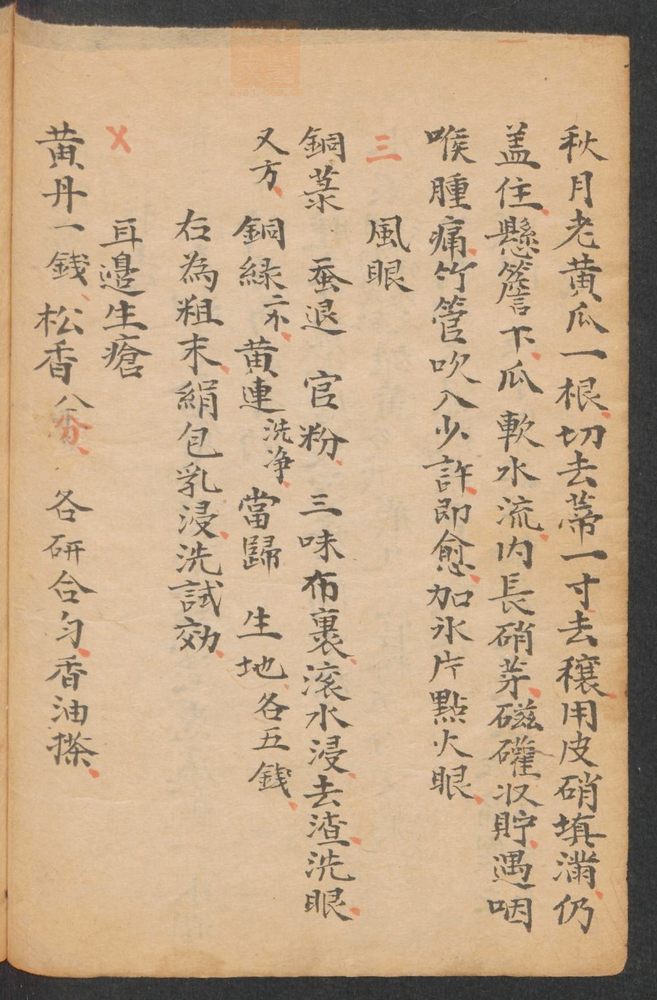 秋月老黃瓜一根切去蒂一寸去穰用皮硝填滿仍
盖住懸簷下瓜軟水流内長硝芽磁礶収貯遇咽
喉腫痛竹管吹入少許即愈加氷片點火眼
三 風眼
銅菉 蚕退 官粉 三味布裹滚水浸去渣洗眼
又方 銅緑 黃連洗净 當歸 生地各五錢
右為粗末絹包乳浸洗試効
耳邉生瘡
黃丹一錢 松香八分 各研合匀香油搽